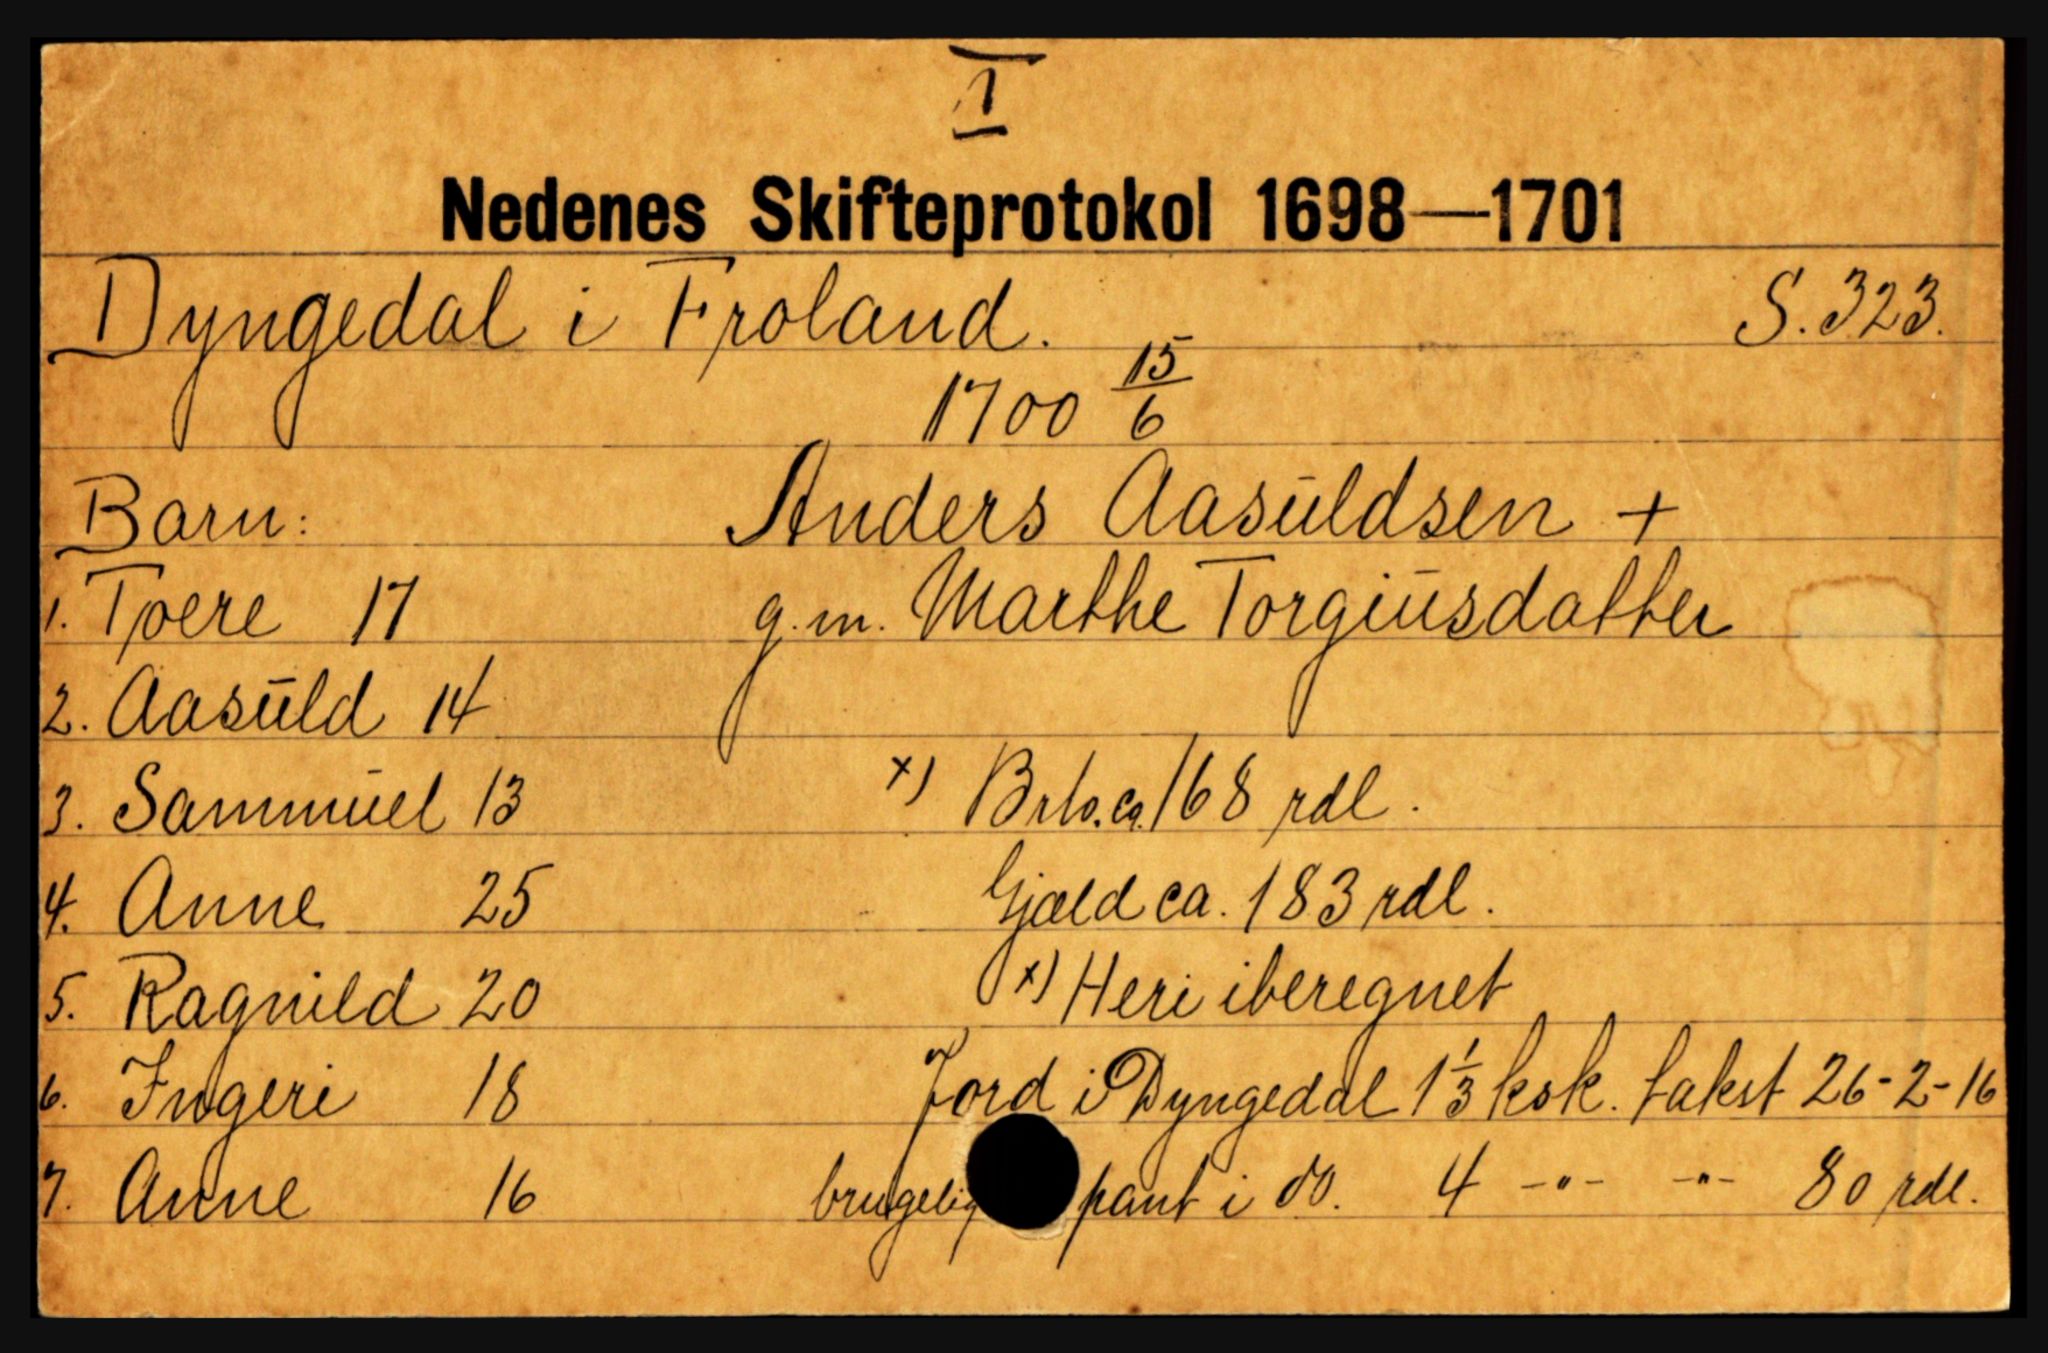 I
Nedenes Skifteprotokol 1698—1701
Dyngedal i Froland. S. 323.
1700 15/6
Barn: Anders Aasuldsen +
1. Tjoere 17 g.m. Marthe Torgiusdatter
2. Aasuld 14
3. Sammuel 13 x) Brto. ca. 168 rdl.
4. Anne 25 Gjæld ca. 183 rdl.
5. Ragnild 20 x) Heri iberegnet
6. Ingeri 18 Jord i Dyngedal 1 1/3 ksk. takst 26-2-16
7. Anne 16 brugelig pant i do. 4 -"- -"- 80 rdl.